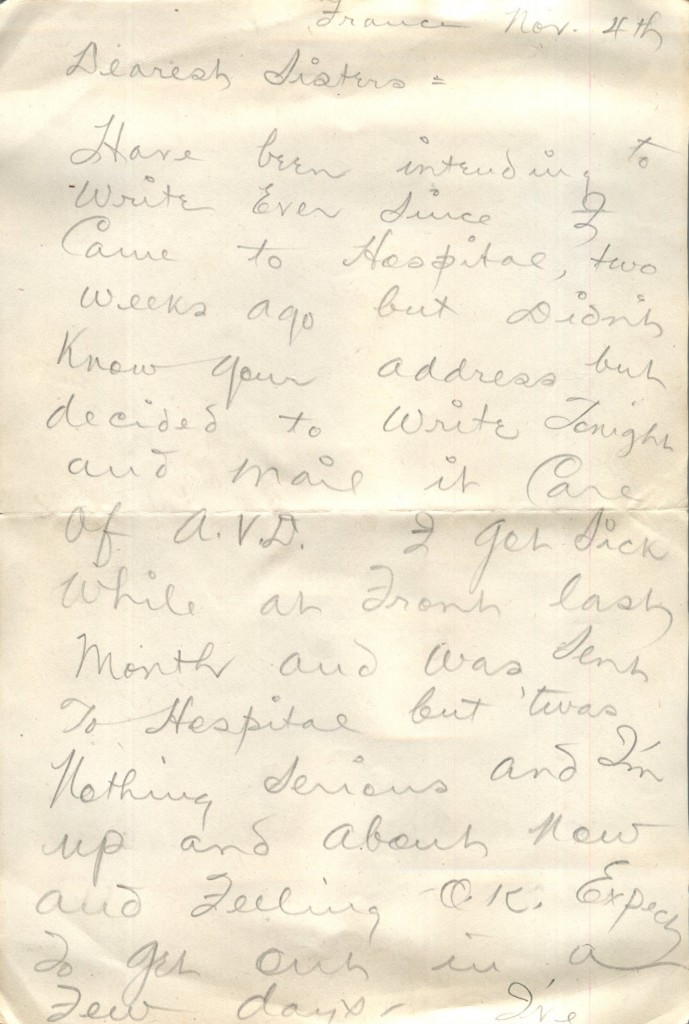 France Nov. 4th
Dearest Sisters =
Have been intending to
Write Ever Since I
Came to Hospital, two
weeks ago but Didn't
Know your address but
decided to Write Tonight
and mail it Care
Of A.V.D. I got Sick
While at Front last
Month and was Sent
To Hospital but 'twas
Nothing Serious and I'm
up and about Now
and Feeling O.K. Expect
To get out in a
Few days - I've